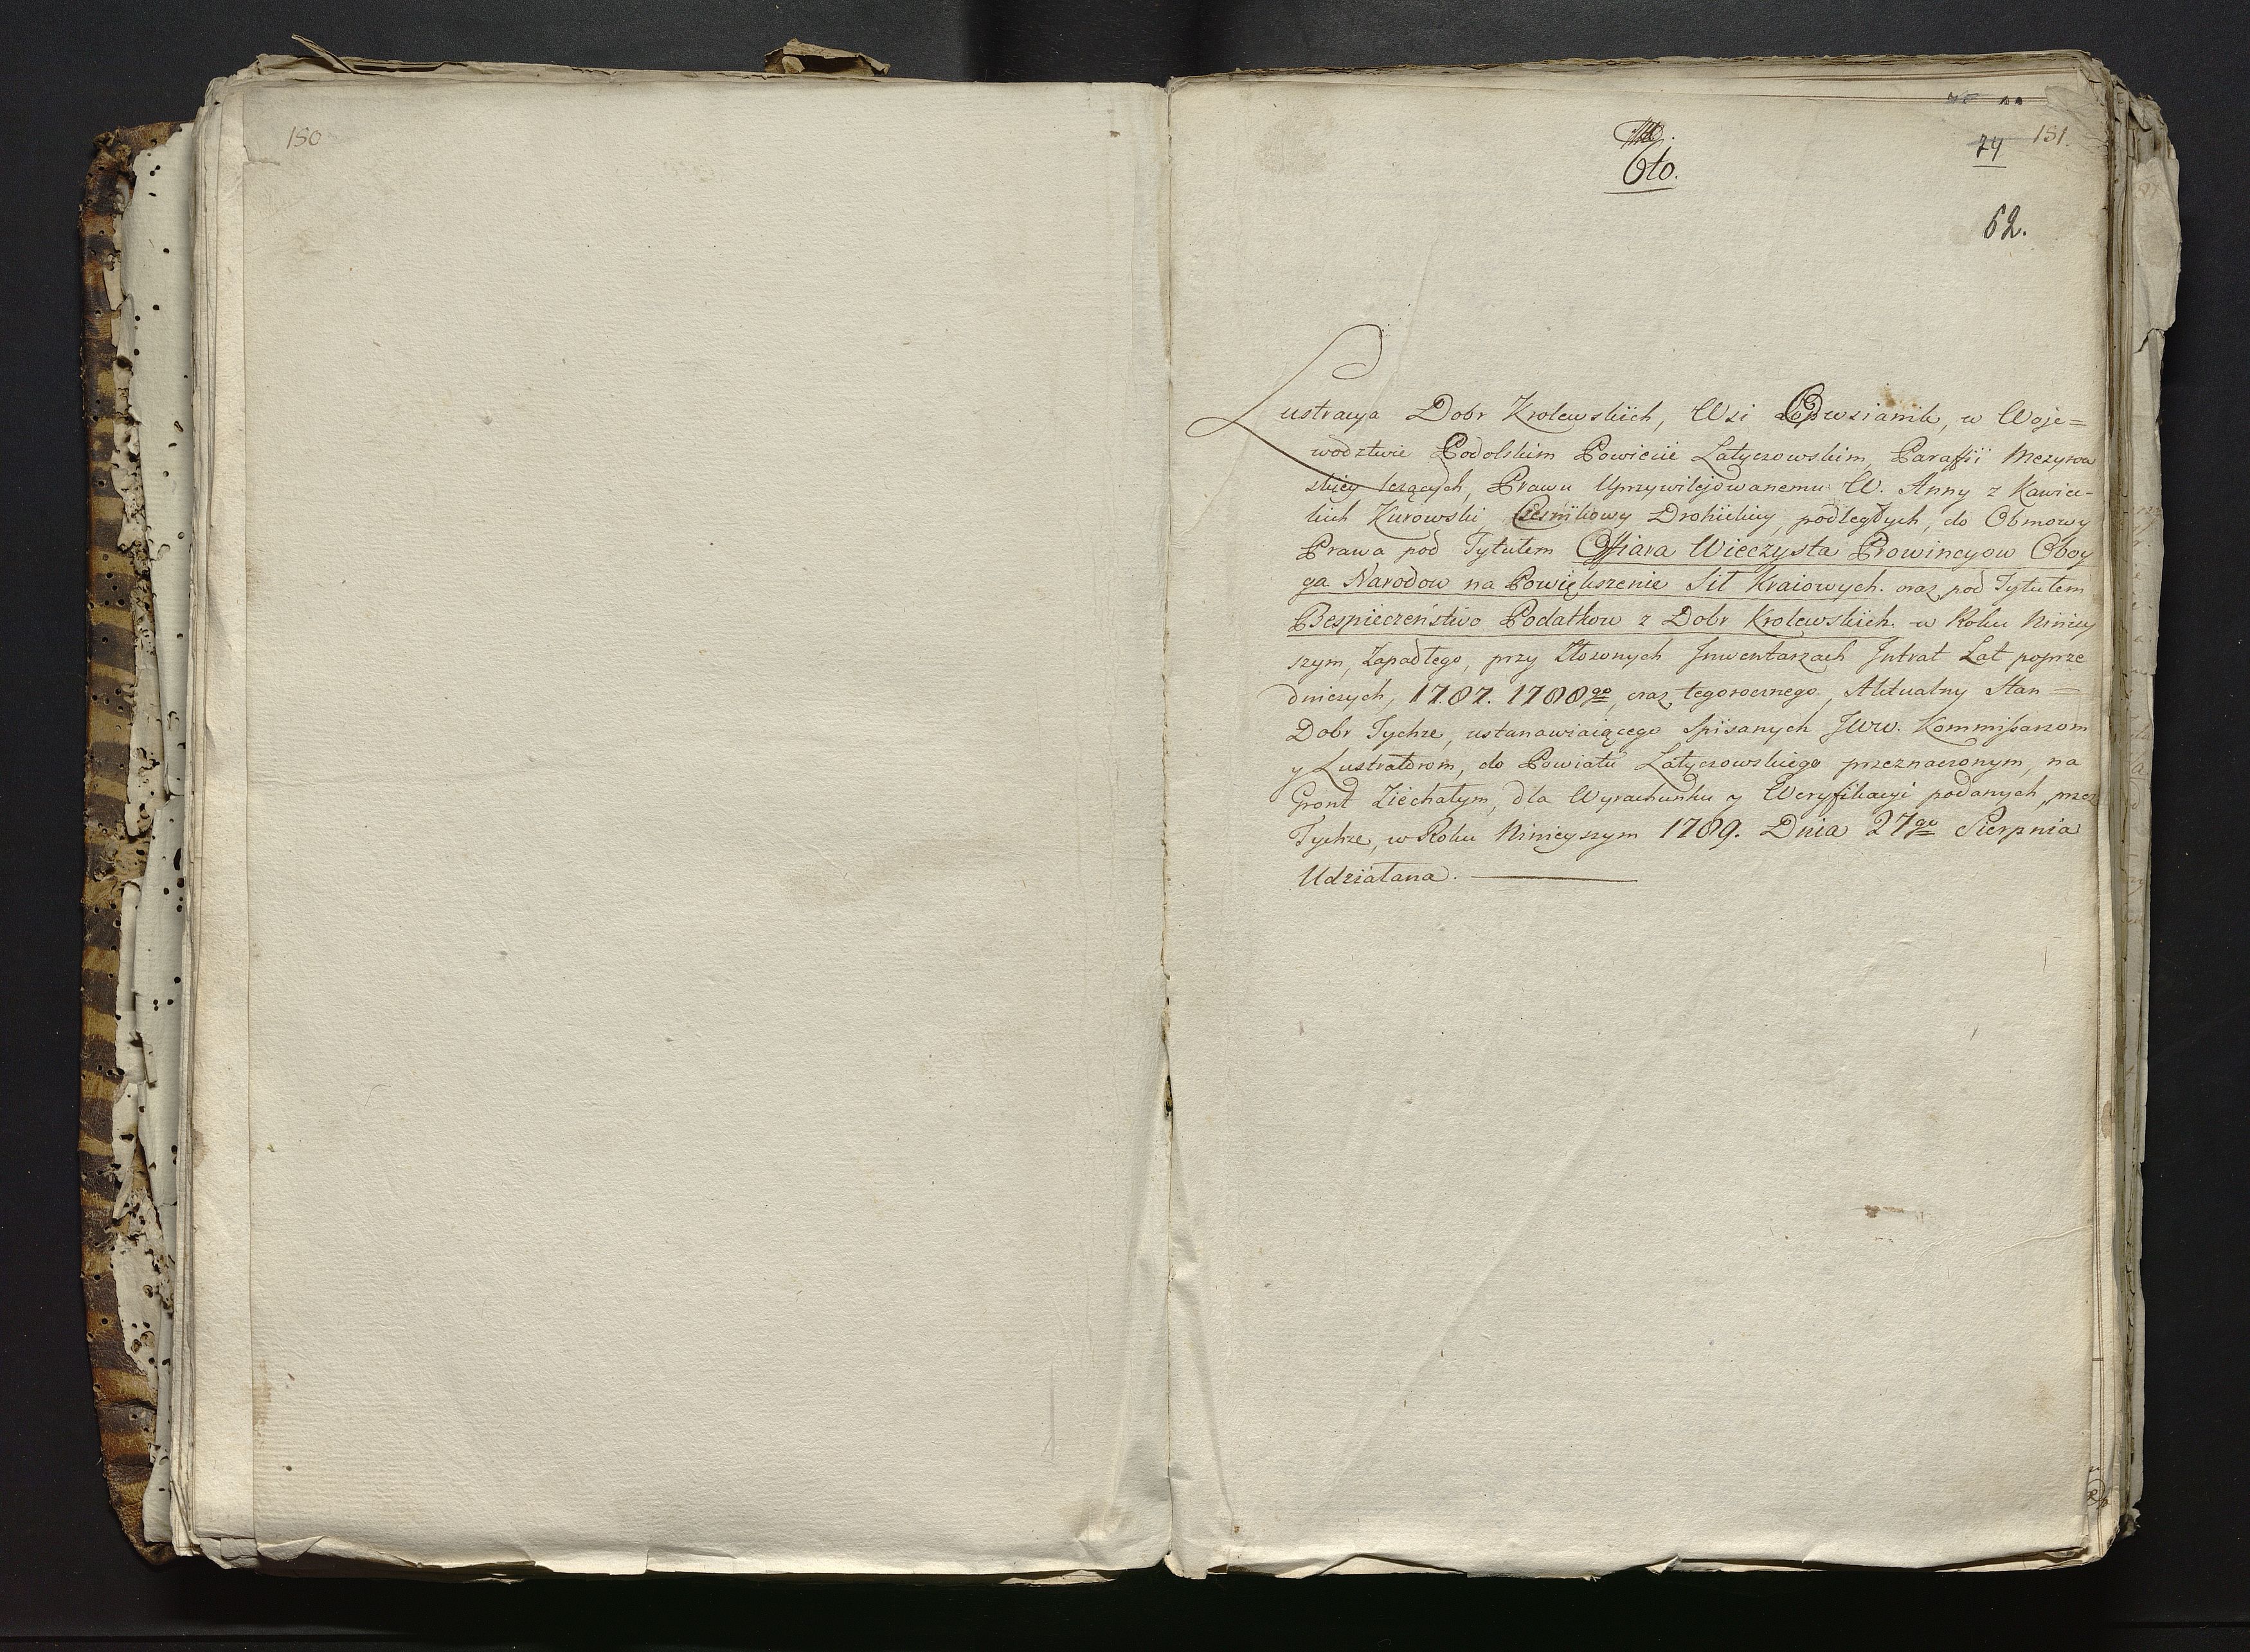 150
151.
74
6to.
62.
Lustracya Dobr Krolewskiich, Wsi Owsianik, w Woje=
wodztwie Podolskim Powiecie Latyczowskim, Paraffii Mezyrow
skiey leżących, Prawu Uprzywilejowanemu W. Anny z Kawiec-
kich Kurowski, Cześnikowy Drohickiey podległych, do Obmowy
Prawa pod Tytułem Offiara Wieczysta Prowincyow Oboy
ga Narodow na Powiększenie Sił Kraiowych. oraz pod Tytułem
Bespieczeństwo Podatkow z Dobr Krolewskiich w Roku Niniey
szym, Zapadłego, przy Złożonych Jnwentarzach Jntrat Lat poprze
dniczych, 1787. 1788go, oraz tegorocznego, Aktualny Stan =
Dobr Tychże, ustanawiaiącego Spisanych JWW. Kommissarzom
y Lustratorom, do Powiatu Latyczowskiego przeznaczonym, na
Gront Ziechałym, dla Wyrachunku y Weryfikacyi podanych przez
Tychże, w Roku Ninieyszym 1789. Dnia 27go Sierpnia
Udziałana.